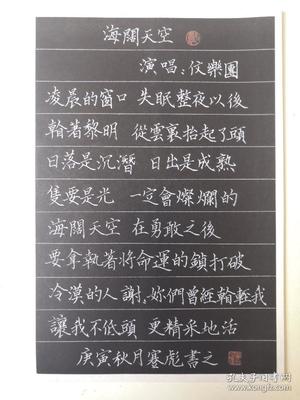 海闊天空
演唱：伩樂團
凌晨的窗口 失眠整夜以後
看著黎明 從雲裏抬起了頭
日落是沉潛 日出是成熟
隻要是光 一定會燦爛的
海闊天空 在勇敢之後
要拿執著將命運的鎖打破
冷漠的人 謝。妳們曾經輕我
讓我不低頭 更精采地活
庚寅秋月蹇彪書之
孔夫子旧书网